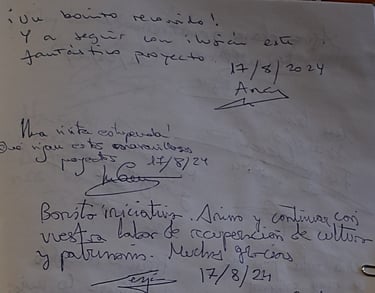 ¡Un bonito recorrido!
Y a seguir con ilusión este
fantástico proyecto.
17/8/2024
Ana
Una visita estupenda!
Qué sigan estos maravillosos
proyectos 17/8/24
Bonita iniciativa. Animo y continuar con
vuestra labor de recuperación de cultura
y patrimonio. Muchas gracias
17/8/24